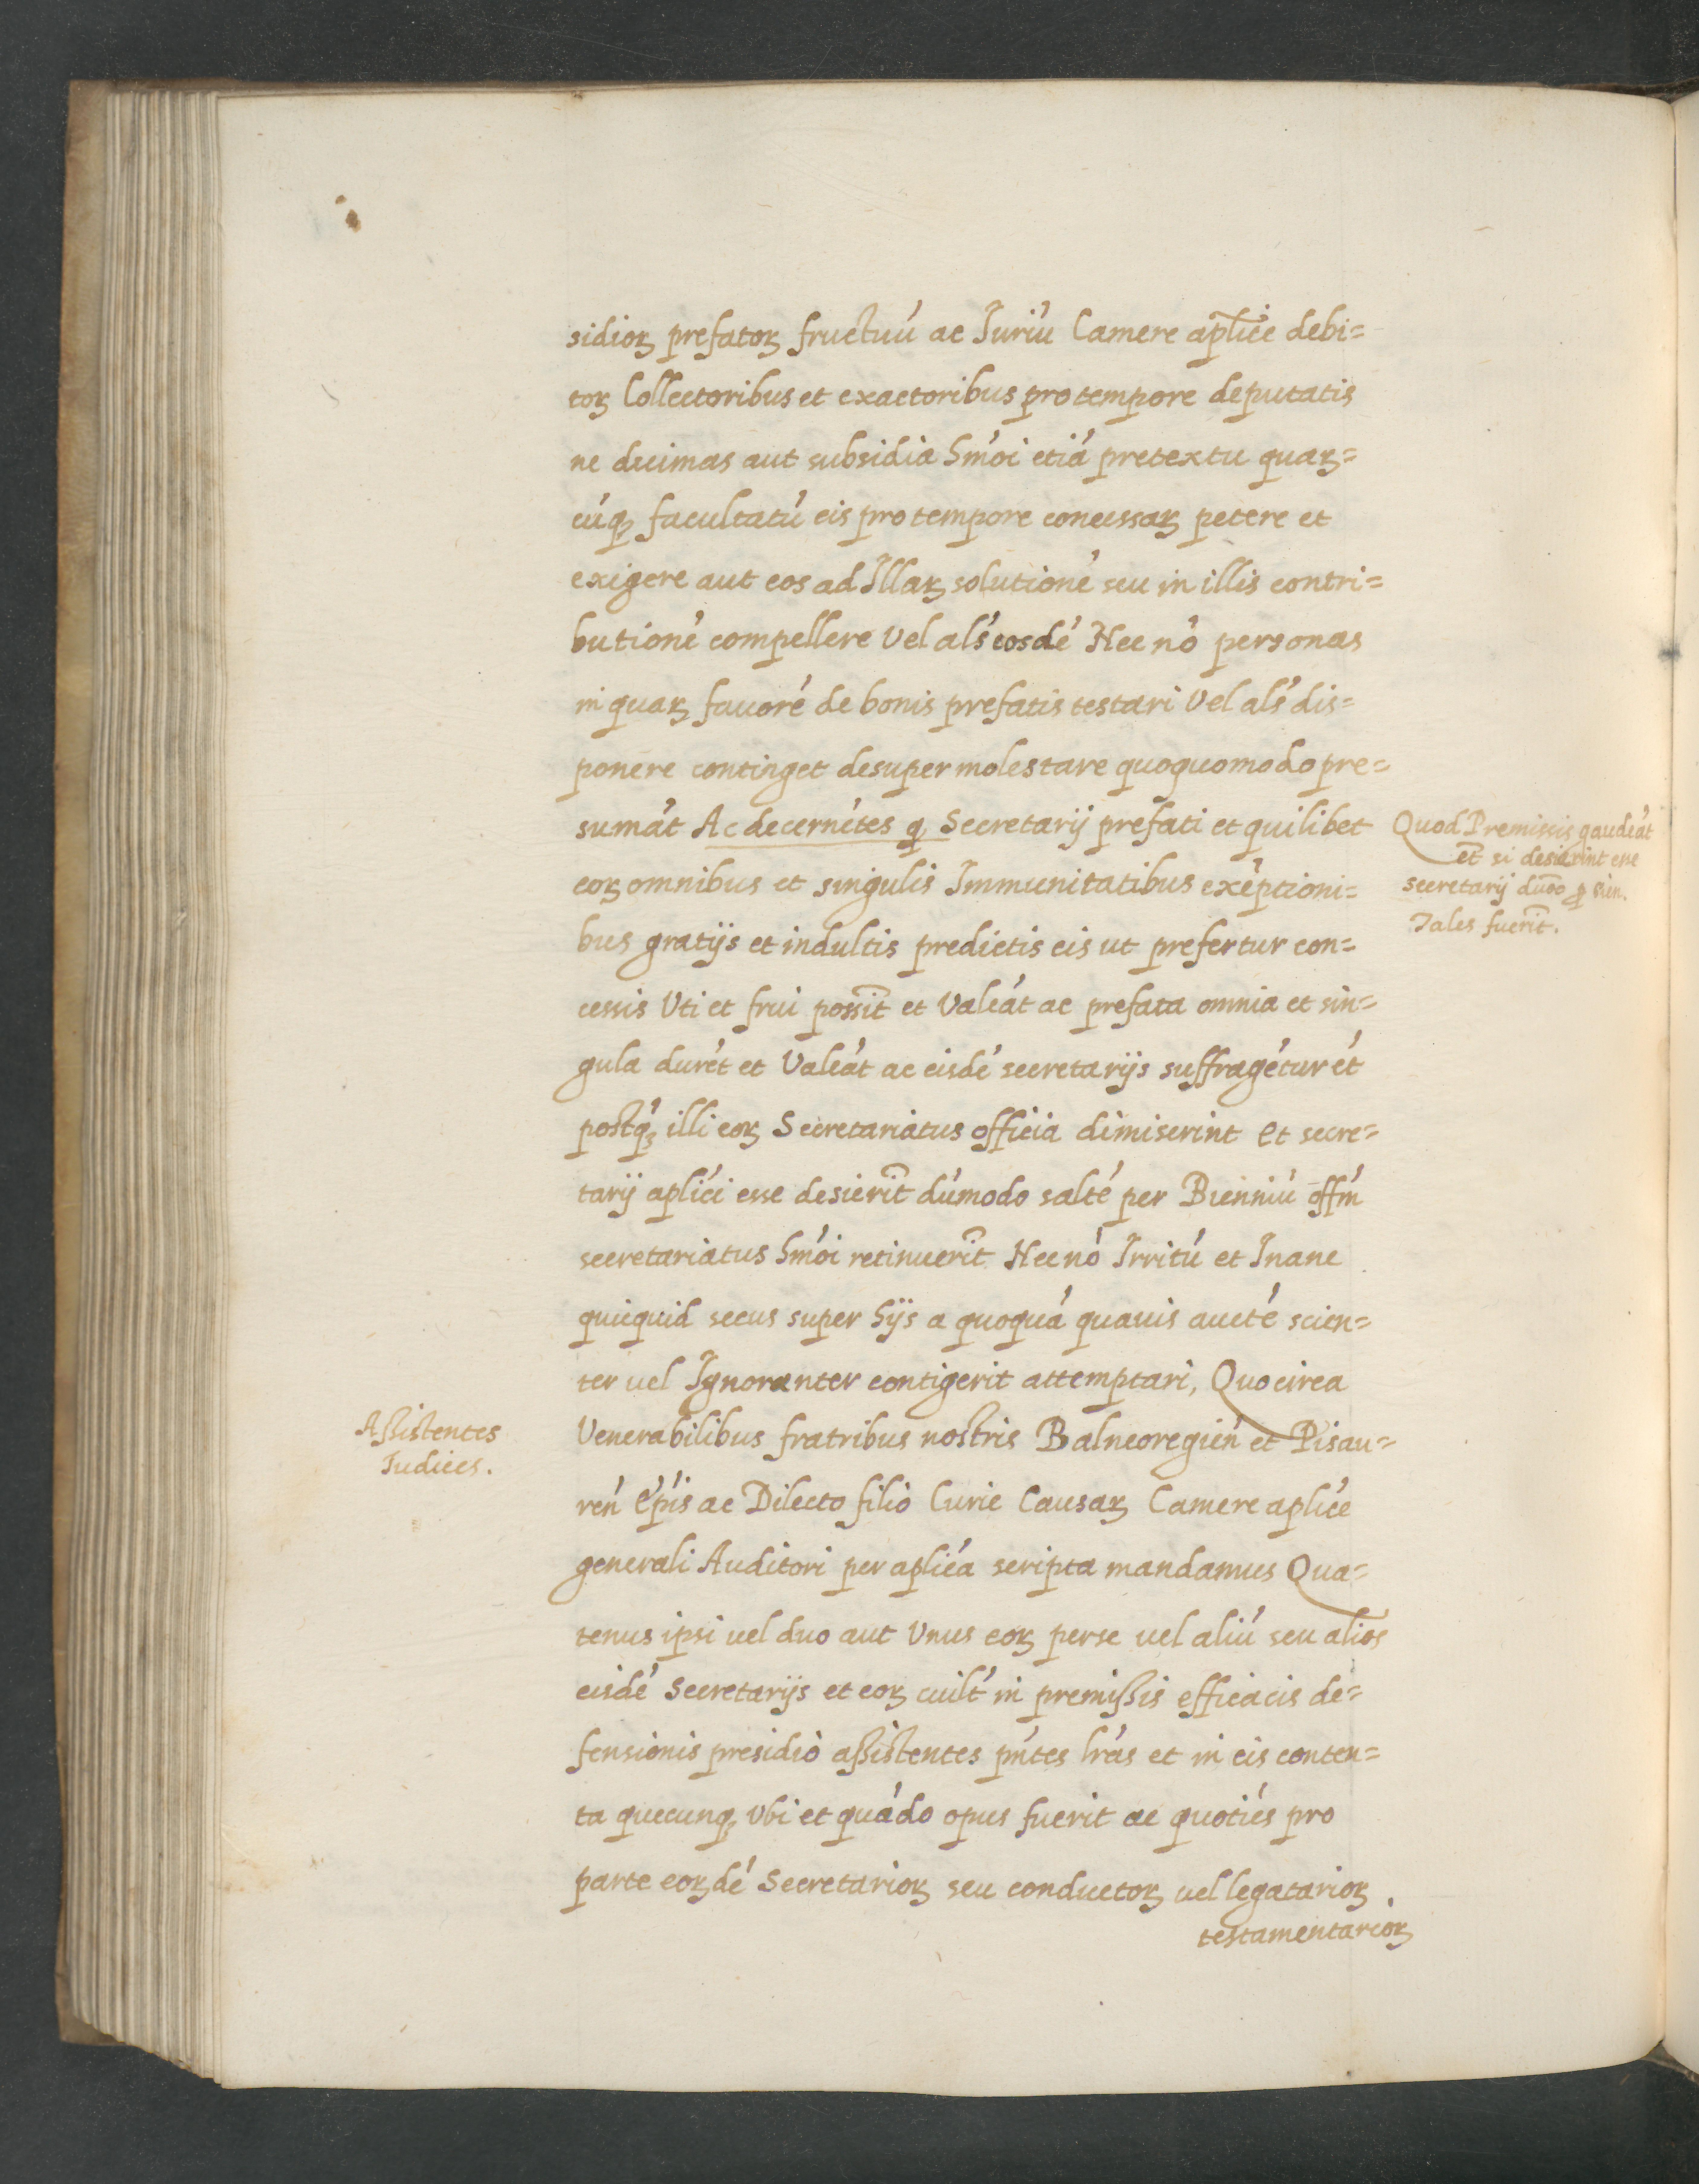 sidioꝝ prefatoꝝ fructuū ac Juriū Camere aplice debi=
toꝝ Collectoribus et exactoribus pro tempore deputatis
ne decimas aut subsidia hmōi etiā pretextu quaꝝ=
cūqꝫ facultatū eis pro tempore concessaꝝ petere et
exigere aut eos ad Illaꝝ solutionē seu in illis contri=
butionē compellere Vel als eosdē Nec nō personas
in quaꝝ fauorē de bonis prefatis testari Vel als dis=
ponere continget desuper molestare quoquomodo pre=
sumāt Ac decernētes ꝙ Secretarij prefati et quilibet
eoꝝ omnibus et singulis Immunitatibus exēptioni=
bus gratijs et indultis predictis eis ut prefertur con=
cessis Uti et frui possīt et Valeāt ac prefata omnia et sin=
gula durēt et Valeāt ac eisdē secretarijs suffragētur ēt
postqꝫ illi eoꝝ Secretariatus officia dimiserint et secre=
tarij aplici esse desierīt dūmodo saltē per Bienniū offm
secretariatus hmōi retinuerīt Nec nō Irritū et Inane
quicquid secus super hijs a quoquā quauis auctē scien=
ter uel Ignoranter contigerit attemptari, Quocirca
Venerabilibus fratribus nostris Balneoregien et Pisau=
ren epis ac Dilecto filio Curie Causaꝝ Camere aplice
generali Auditori per aplica scripta mandamus Qua=
tenus ipsi uel duo aut Unus eoꝝ per se uel aliū seu alios
eisdē Secretarijs et eoꝝ cuilt in premißis efficacis de=
fensionis presidio aßistentes pntes lras et in eis conten=
ta quecunqꝫ Ubi et quādo opus fuerit ac quotiēs pro
parte eoꝝdē Secretarioꝝ seu conductoꝝ uel legatarioꝝ
testamentarioꝝ
Quod Premissis gaudeāt
et̄ si desierint esse
secretarij dūo ꝑ bien.
Tales fuerīt.
Aßistentes
Iudices.